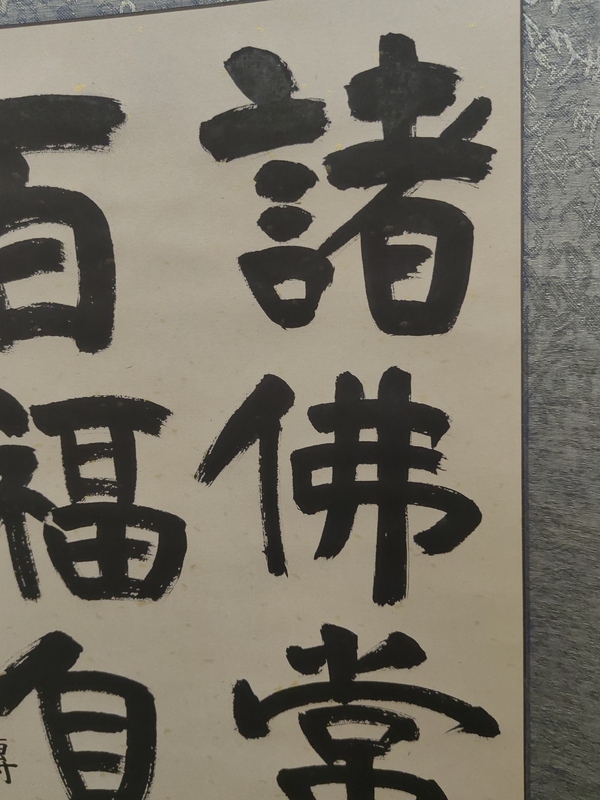 諸佛常
百福自